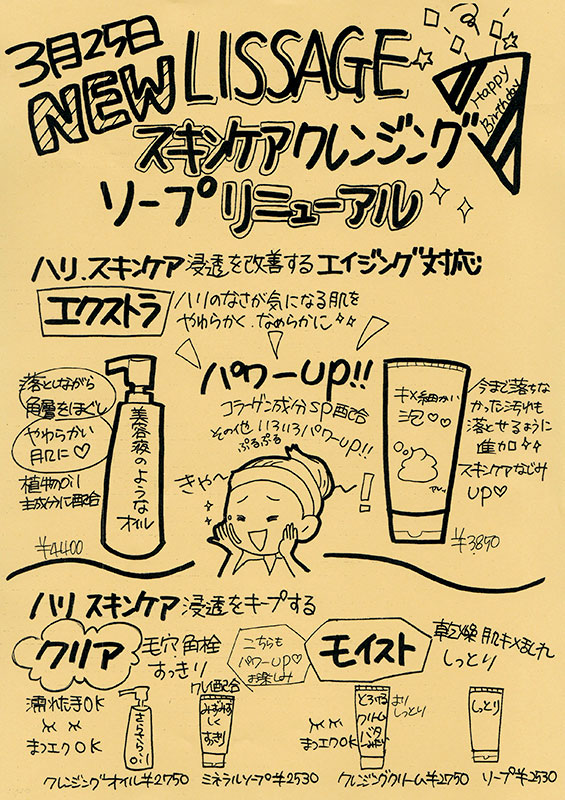 3月25日
NEW LISSAGE
Happy
Birthday
スキンケアクレンジング
ソープリニューアル
ハリ、スキンケア浸透を改善するエイジング対応
エクストラ
ハリのなさが気になる肌を
やわらかく、なめらかに
パワーUP!!
コラーゲン成分SP配合
その他いろいろパワーUP!!
ぷるぷる
落としながら
角層をほぐし
やわらかい
肌に♡
植物Oil
主成分に配合
美容液のような
オイル
¥4400
きゃ〜
!
キメ細かい
泡♡♡
今まで落ちな
かった汚れも
落とせるように
進化
スキンケアなじみ
UP♡
¥3850
ハリ スキンケア浸透をキープする
クリア
毛穴 角栓
すっきり
こちらも
パワーUP♡
お楽しみ
モイスト
乾燥 肌キメみだれ
しっとり
濡れた手OK
まつエクOK
さらさら
Oil
クレイ配合
すっきり
まつエクOK
とろける
クリーム
バタ
より
しっとり
しっとり
クレンジングオイル¥2750
ミネラルソープ¥2530
クレンジングクリーム¥2750
ソープ¥2530